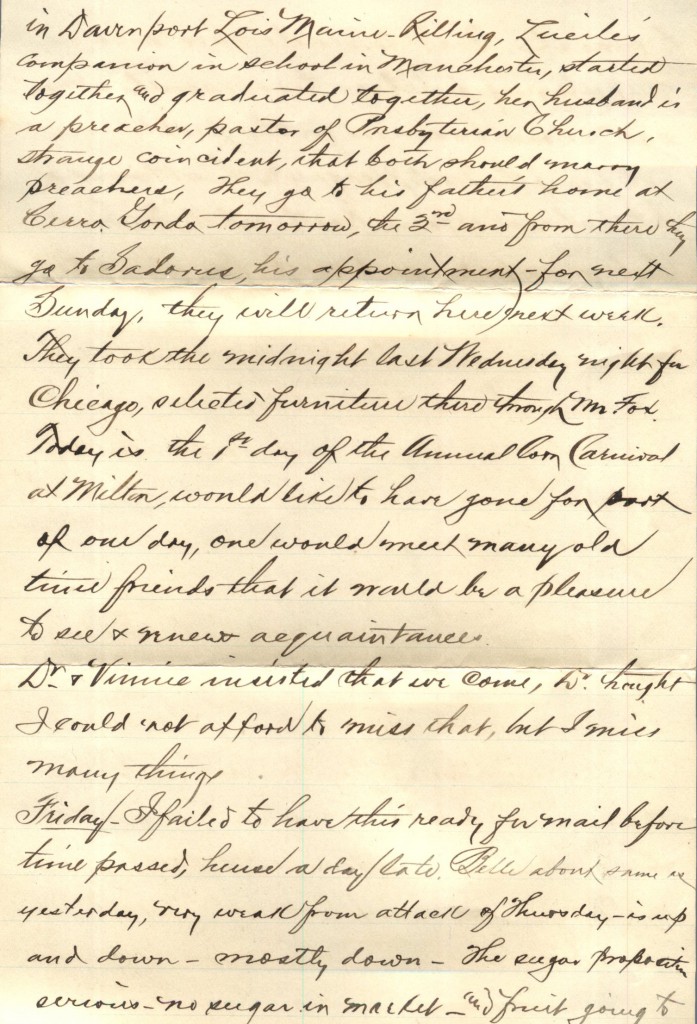 in Davenport Lois Maine-Rilling, Lucile's
companion in school in Manchester, started
together and graduated together, her husband is
a preacher, pastor of Presbyterian Church,
strange coincident, that both should marry
preachers, They go to his father's home at
Cerro Gordo tomorrow, the 2nd and from there they
go to Sadorus, his appointment - for next
Sunday, they will return here next week.
They took the midnight last Wednesday night for
Chicago, selected furniture there through Mr Fox.
Today is the 1st day of the Annual Corn Carnival
at Milton, would like to have gone for part
of our day, one would meet many old
time friends that it would be a pleasure
to see & renew acquaintances.
Dr. & Vinnie insisted that we come, Dr. thought
I could not afford to miss that, but I miss
many things
Friday - I failed to have this ready for mail before
time passed, hense a day late. Belle about same as
yesterday, very weak from attack of Thursday - is up
and down - mostly down - The sugar proposition
serious - no sugar in market - and fruit going to